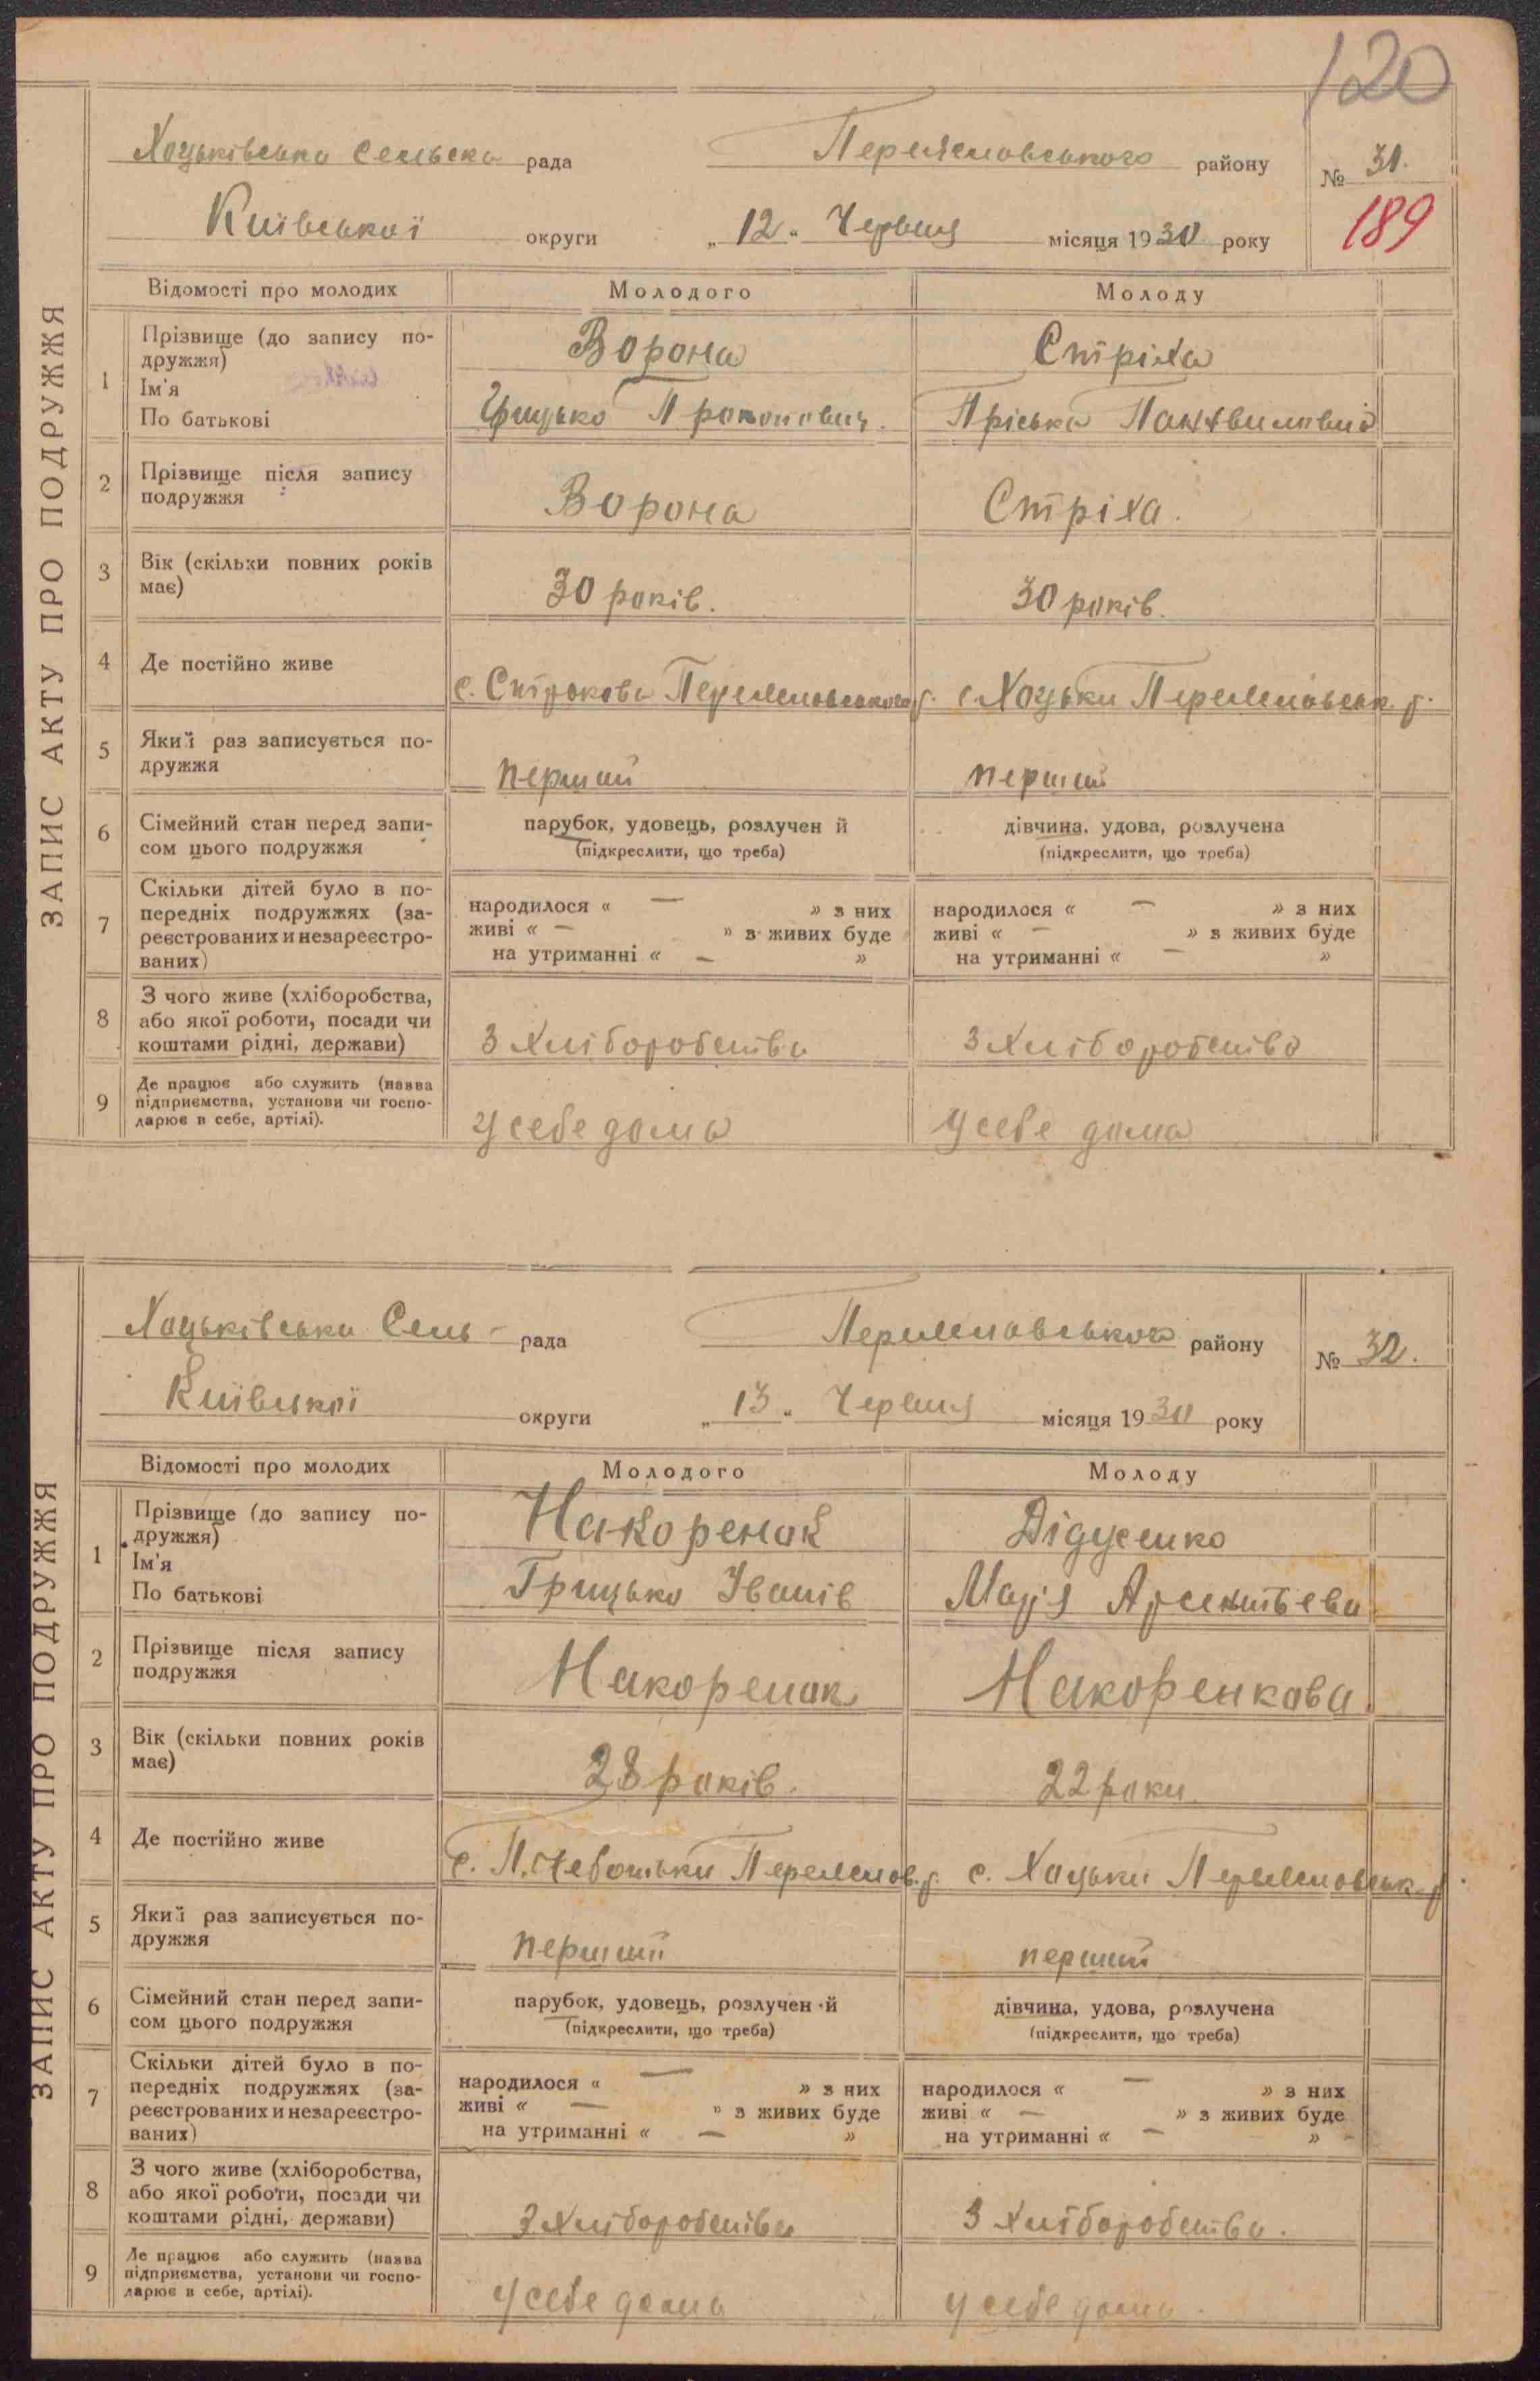 120
Хоцьківська сельска рада Переяславського району № 31.
Київської округи „ 12 “ Червня місяця 1930 року 189
ЗАПИС АКТУ ПРО ПОДРУЖЖЯ
Відомості про молодих Молодого Молоду
1 Прізвище (до запису по-
дружжя) Ворона Стріха
Ім'я
По батькові Грицько Прокопович. Пріська
2 Прізвище після запису
подружжя Ворона Стріха.
3 Вік (скільки повних років
має) 30 років. 30 років.
4 Де постійно живе с. Строкова Переяславського р. с Хоцьки Переяславськ. р.
5 Який раз записується по-
дружжя перший перший
6 Сімейний стан перед запи-
сом цього подружжя
парубок, удовець, розлучен й дівчина, удова, розлучена
(підкреслити, що треба) (підкреслити, що треба)
7 Скільки дітей було в по-
передніх подружжях (за-
реєстрованих и незареєстро-
ваних)
народилося « — » з них народилося « — » з них
живі « — » з живих буде живі « — » з живих буде
на утриманні « — » на утриманні « — »
8 З чого живе (хліборобства,
або якої роботи, посади чи
коштами рідні, держави) З хліборобства З хліборобства
9 Де працює або служить (назва
підприємства, установи чи госпо-
дарює в себе, артілі). У себе дома У себе дома
Хоцьківська Сель- рада Переяславського району № 32.
Київської округи „ 13 “ Червня місяця 1930 року
ЗАПИС АКТУ ПРО ПОДРУЖЖЯ
Відомості про молодих Молодого Молоду
1 Прізвище (до запису по-
дружжя) Накоренок Дідусенко
Ім'я
По батькові Грицько Іванів Марія Арсентьева
2 Прізвище після запису
подружжя Накоренок Накоренкова
3 Вік (скільки повних років
має) 28 років. 22 роки
4 Де постійно живе с. Переяслов. р. с. Хоцьки Переяславськ. р.
5 Який раз записується по-
дружжя перший перший
6 Сімейний стан перед запи-
сом цього подружжя
парубок, удовець, розлучен й дівчина, удова, розлучена
(підкреслити, що треба) (підкреслити, що треба)
7 Скільки дітей було в по-
передніх подружжях (за-
реєстрованих и незареєстро-
ваних)
народилося « — » з них народилося « — » з них
живі « — » з живих буде живі « — » з живих буде
на утриманні « — » на утриманні « — »
8 З чого живе (хліборобства,
або якої роботи, посади чи
коштами рідні, держави) З хліборобства З хліборобства.
9 Де працює або служить (назва
підприємства, установи чи госпо-
дарює в себе, артілі). У себе дома У себе дома.